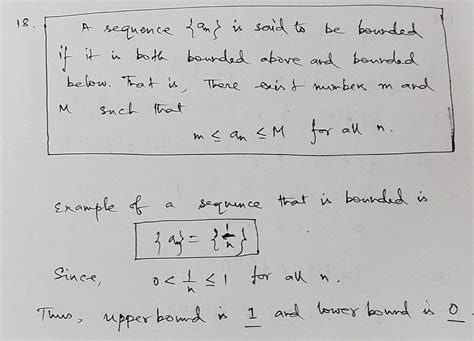 18. A sequence {aₙ} is said to be bounded
if it is both bounded above and bounded
below. That is, There exist numbers m and
M such that
m ≤ aₙ ≤ M for all n.
Example of a sequence that is bounded is
{aₙ} = {1/n}
Since, 0 < 1/n ≤ 1 for all n.
Thus, upper bound is 1 and lower bound is 0.